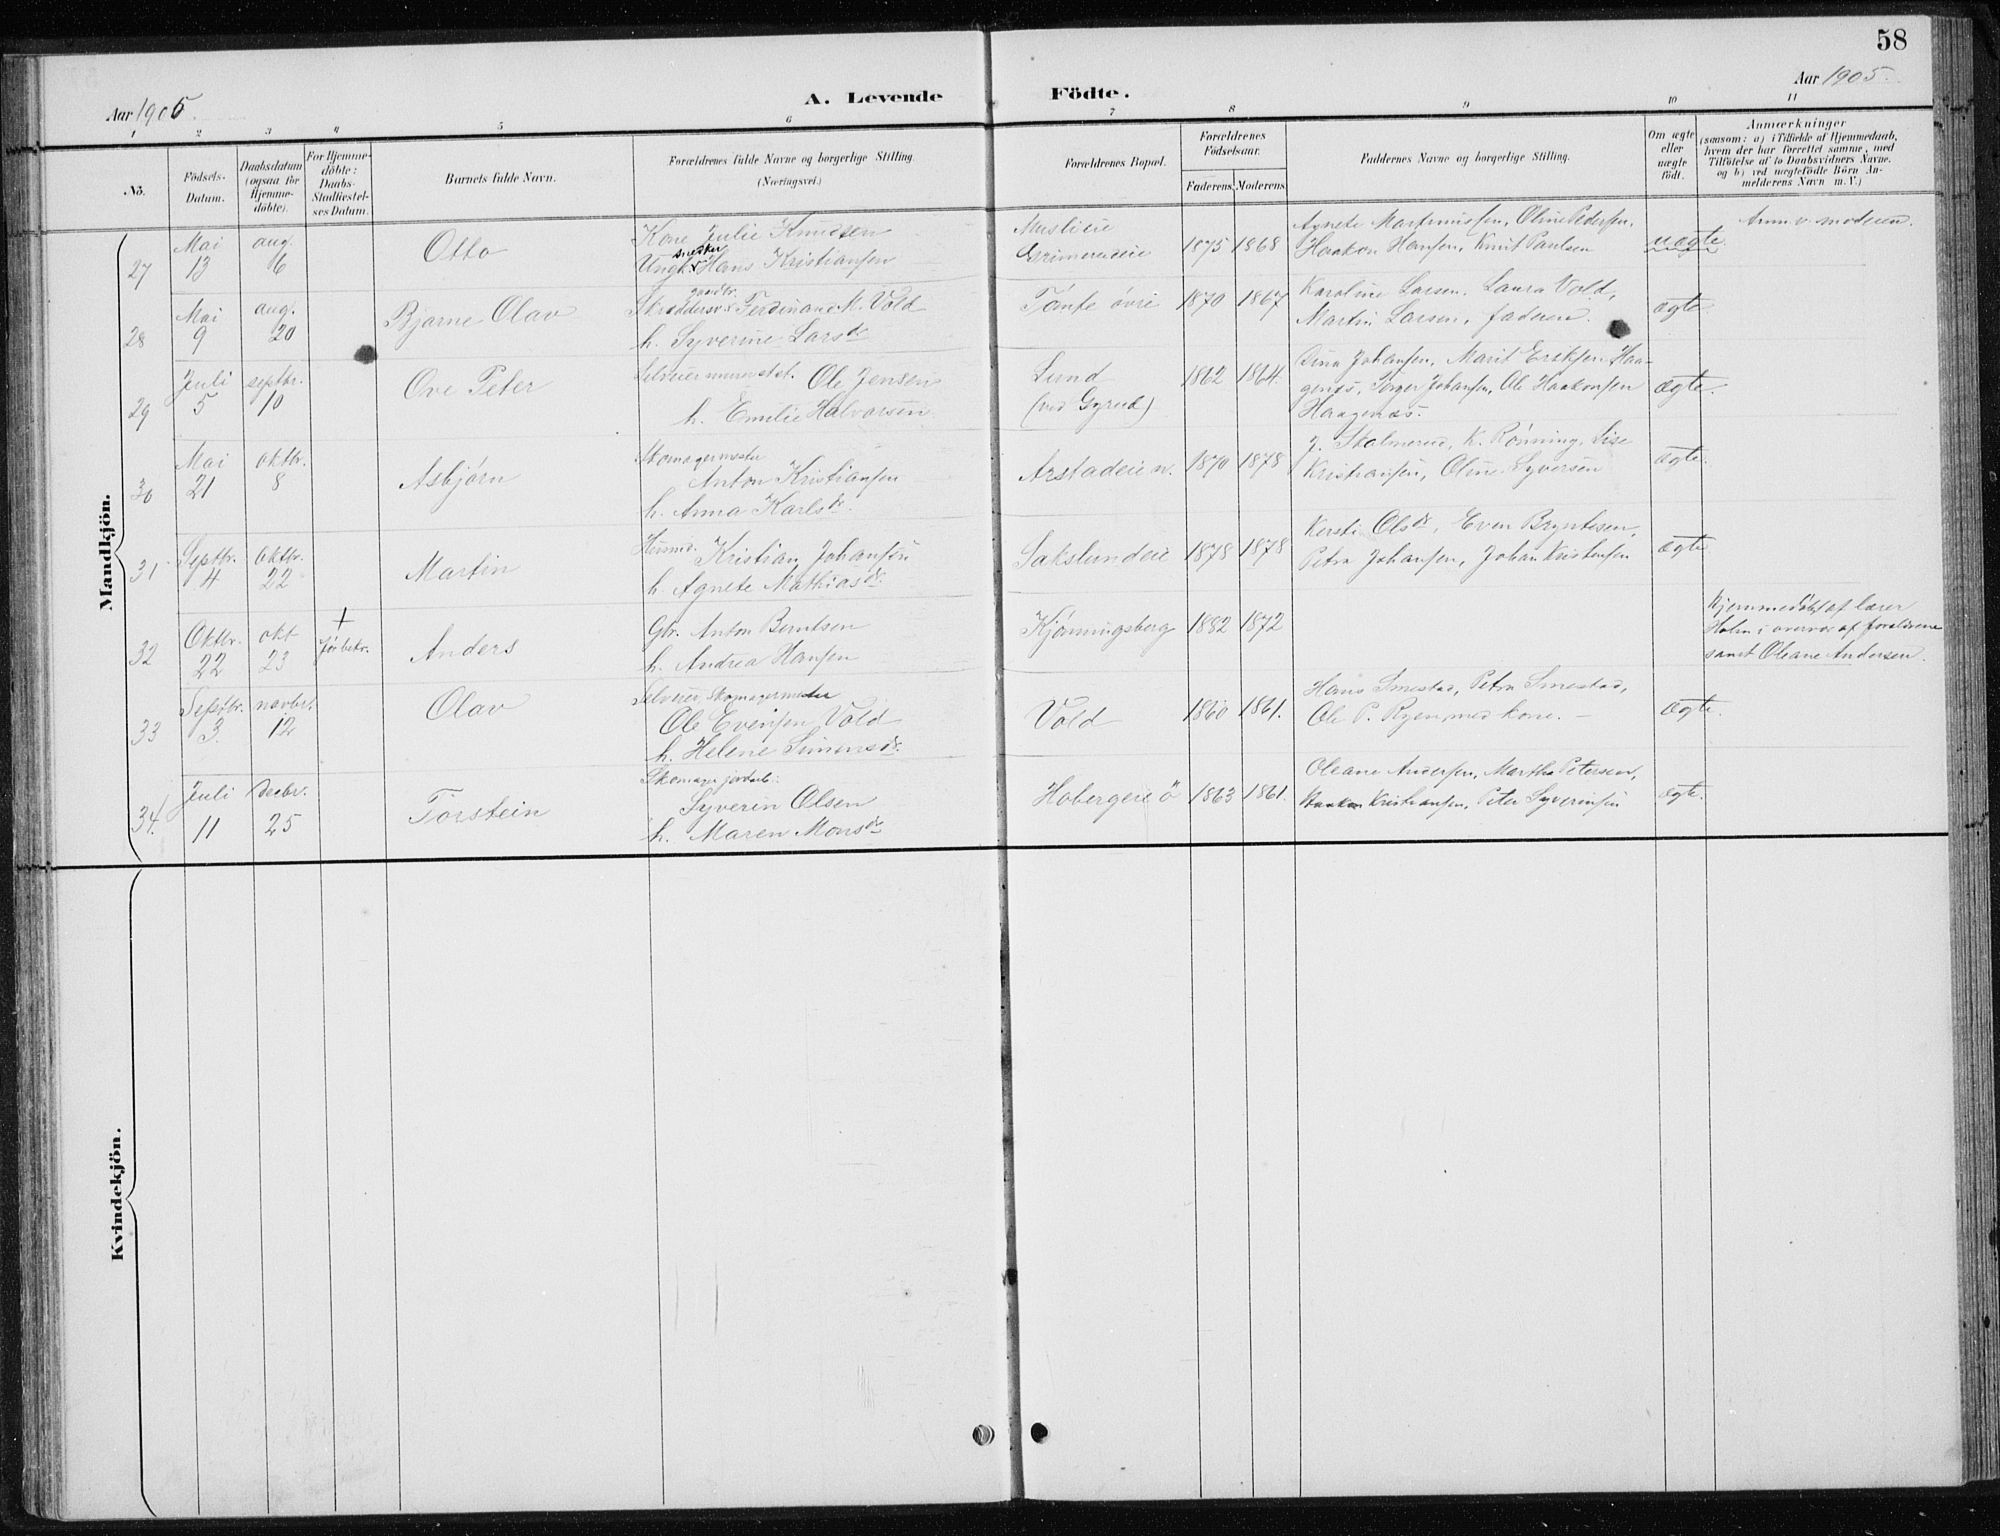 58
Aar 1905. A. Levende Födte. Aar 1905.
1 2 3 4 5 6 7 8 9 10 11
No.
Födsels-Datum.
Daabsdatum (ogsaa for Hjemmedöbte).
For Hjemmedöbte: Daabs-Stadfestelses Datum.
Barnets fulde Navn.
Forældrenes fulde Navne og borgerlige Stilling. (Næringsvei.)
Forældrenes Bopæl.
Forældrenes Födselsaar. Faderens. Moderens.
Faddernes Navne og borgerlige Stilling.
Om ægte eller uægte födt.
Anmærkninger (saasom: a) i Tilfælde af Hjemmedaab, hvem der har forrettet samme, med Tilföielse af to Daabsvidners Navne, og b) ved uægtefödte Börn Anmelderens Navn m. V.)
Mandkjön.
27
Mai 13
aug. 6
Otto
Kone Julie Knudsen
Ungk. snedker Hans Kristiansen
Muslieie
Grimerudeie
1875 1868
Agnete Martinussen, Oline Pedersen,
Haakon Hansen, Knut Paulsen
uægte
Anm. v. moderen.
28
Mai 9
aug. 20
Bjarne Olav
Ferdinand M. Vold
h. Syverine Larsdr
Tömte övre
1870 1867
Karoline Larsen, Laura Vold,
Martin Larsen, faderen.
ægte.
29
Juli 5
septbr. 10
Ove Peter
Selveier Ole Jensen
h. Emilie Halvorsen
Lund
(ved Gyrud)
1862 1864.
Dina Johansen, Marit Eriksen Haagenös, Torger Johansen, Ole Haakonsen
Haagenæs.
ægte.
30
Mai 21
oktbr. 8
Asbjörn
Skomagermester
Anton Kristiansen
h. Anna Karlsdr.
Arstadeie n.
1870 1878
J. Skalmerud, K. Rönning, Lise
Kristiansen, Oline Syversen
ægte.
31
Septbr. 4
Oktbr. 22
Martin
Husmd. Kristian Johansen
h. Agnete Mathiasdr.
Sakslundeie
1878 1878
Kersti Olsdr, Even Bryntesen,
Petra Johansen, Johan Kristensen
ægte
32
Oktbr. 22
okt 23
+
Anders
Gbr. Anton Berntsen
h. Andrea Hansen
Kjönningsberg
1882 1872
Hjemmedöbt af lærer
Holm i overvær af forældrene
samt Oleane Andersen.
33
Septbr. 3.
novbr. 12
Olav
Selveier Skomagermester
Ole Evensen Vold
h. Helene Simensdr.
Vold
1860 1861.
Hans Smestad, Petra Smestad,
Ole P. Ryen med kone. -
ægte.
34.
Juli 11
Decbr. 25
Torstein
Skomager jordarb.
Syverin Olsen
h. Maren Monsdr
Hobergeie ö
1863 1861.
Oleane Andersen, Martha Petersen,
Haakon Kristiansen, Peter Syverinsen
ægte.
Kvindekjön.